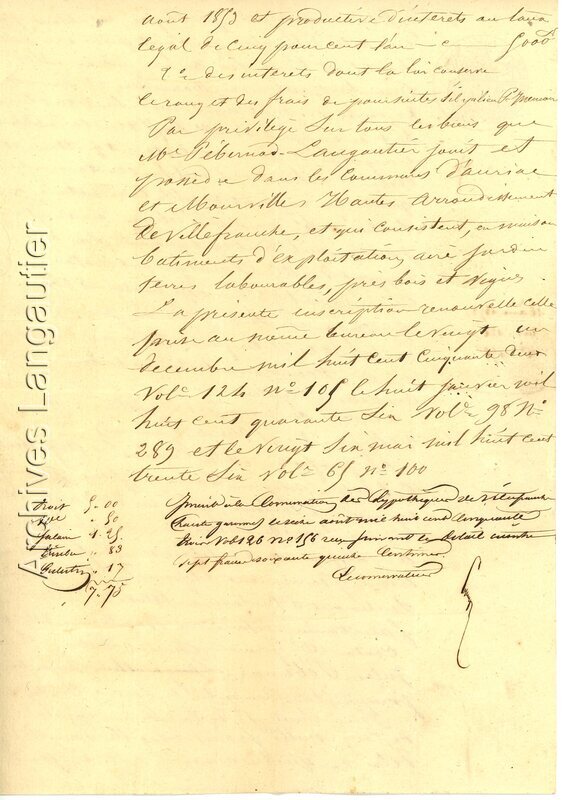 août 1853 et productive d'interets au taux
légal de cinq pour cent l'an 5000f
2° des interets dont la loi conserve
le rang et des frais de poursuites s'il y a lieu P. Memoire
Par privilège Sur tous les biens que
Mr Pébernad-Langautier jouit et
possède dans les Communes d'auriac
et Mourvilles Hautes arrondissement
de Villefranche, et qui consistent, en maison
batiments d'exploitation, aire jardin
terres labourables, près bois et vignes
La présente inscription renouvelle celle
prise au même bureau le vingt un
decembre mil huit cent Cinquante deux
Vol. 124 n° 105 le huit janvier mil
huit cent quarante Six Vol. 98 N°
289 et le Vingt Six mai mil huit cent
trente Six Vol. 65 n° 100
Droit 5.00
50
Salaire 1.25
Timbre 83
17
7.75
Inscrit à la Conservation des hypothèques de Villefranche
haute garonne le seize août mil huit cent cinquante
trois Vol 126 n° 156 reçu suivant le détail
sept francs soixante quinze Centimes
Le conservateur
Archives Langautier